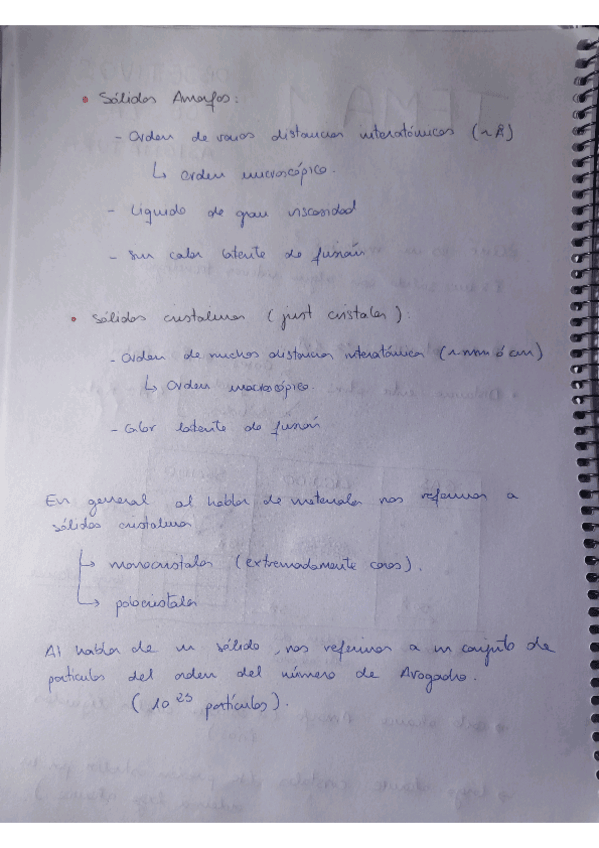 • Sólidos Amorfos:
- Orden de varias distancias interatómicas (~Å)
↳ orden microscópico.
- Líquido de gran viscosidad
- Sin calor latente de fusión
• Sólidos cristalinos (just cristales):
- Orden de muchas distancias interatómicas (~mm ó cm)
↳ Orden macroscópico.
- Calor latente de fusión
En general al hablar de materiales nos referimos a
sólidos cristalinos
↳ monocristales (extremadamente caros).
↳ policristales
Al hablar de un sólido, nos referimos a un conjunto de
partículas del orden del número de Avogadro.
(10²³ partículas).